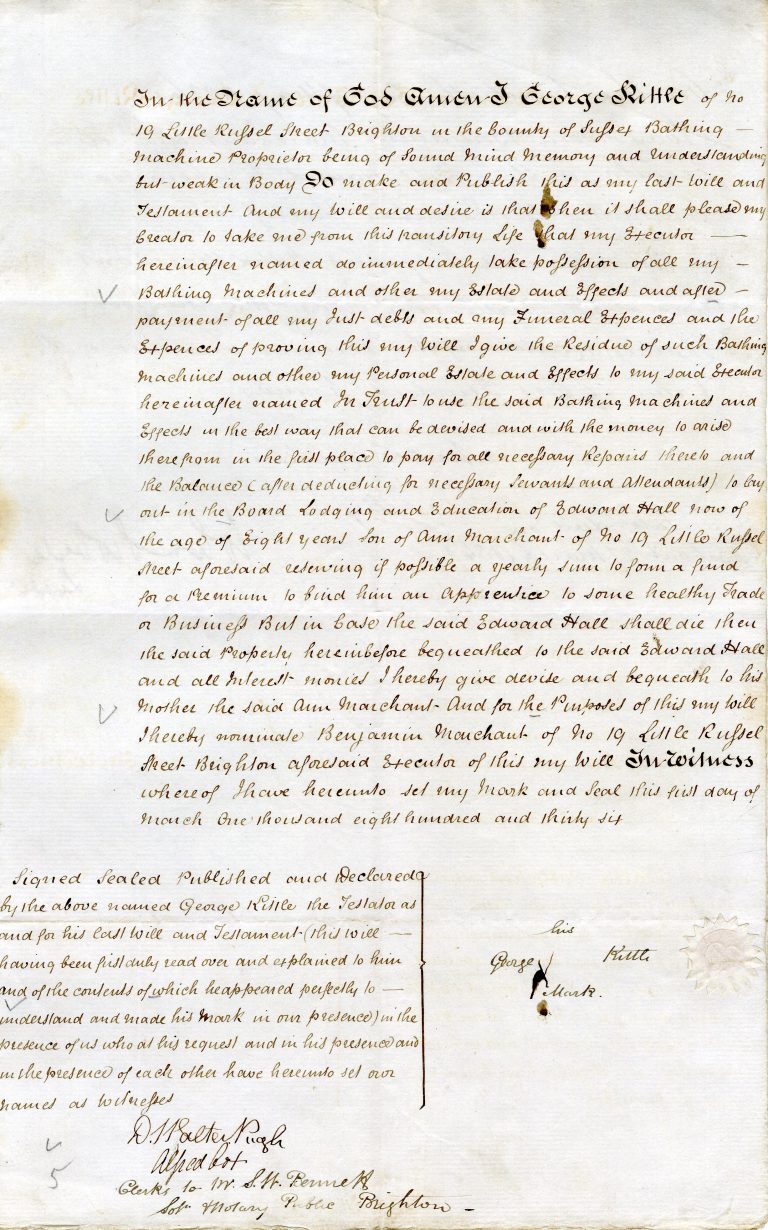 In the Name of God Amen I George Kittle of No
19 Little Russel Street Brighton in the County of Sussex Bathing —
Machine Proprietor being of Sound Mind Memory and Understanding
but weak in Body Do make and Publish this as my last Will and
Testament And my Will and desire is that when it shall please my
Creator to take me from this transitory Life that my Executor —
hereinafter named do immediately take possession of all my —
Bathing Machines and other my Estate and Effects and after —
payment of all my Just debts and my Funeral Expences and the
Expences of proving this my Will I give the Residue of such Bathing
Machines and other my Personal Estate and Effects to my said Executor
hereinafter named In Trust to use the said Bathing Machines and
Effects in the best way that can be devised and with the money to arise
therefrom in the first place to pay for all necessary Repairs thereto and
the Balance (after deducting for necessary Servants and Attendants) to lay
out in the Board Lodging and Education of Edward Hall now of
the age of Eight years Son of Ann Marchant of No 19 Little Russel
Street aforesaid reserving if possible a yearly sum to form a fund
for a Premium to bind him an Apprentice to some healthy Trade
or Business But in Case the said Edward Hall shall die then
the said Property hereinbefore bequeathed to the said Edward Hall
and all Interest monies I hereby give devise and bequeath to his
Mother the said Ann Marchant And for the Purposes of this my Will
I hereby nominate Benjamin Marchant of No 19 Little Russel
Street Brighton aforesaid Executor of this my Will In Witness
whereof I have hereunto set my Mark and Seal this first day of
March One thousand eight hundred and thirty six
Signed Sealed Published and Declared
by the above named George Kittle the Testator as
and for his last Will and Testament (this will —
having been first duly read over and explained to him
and of the contents of which he appeared perfectly to —
understand and made his Mark in our presence) in the
presence of us who at his request and in his presence and
in the presence of each other have hereunto set our
names as Witnesses
his
George Kittle
Mark.
D. Walter Pugh
Alfred Cox
Clerks to Mr. S. W. Bennett
Solr. & Notary Public Brighton —
5